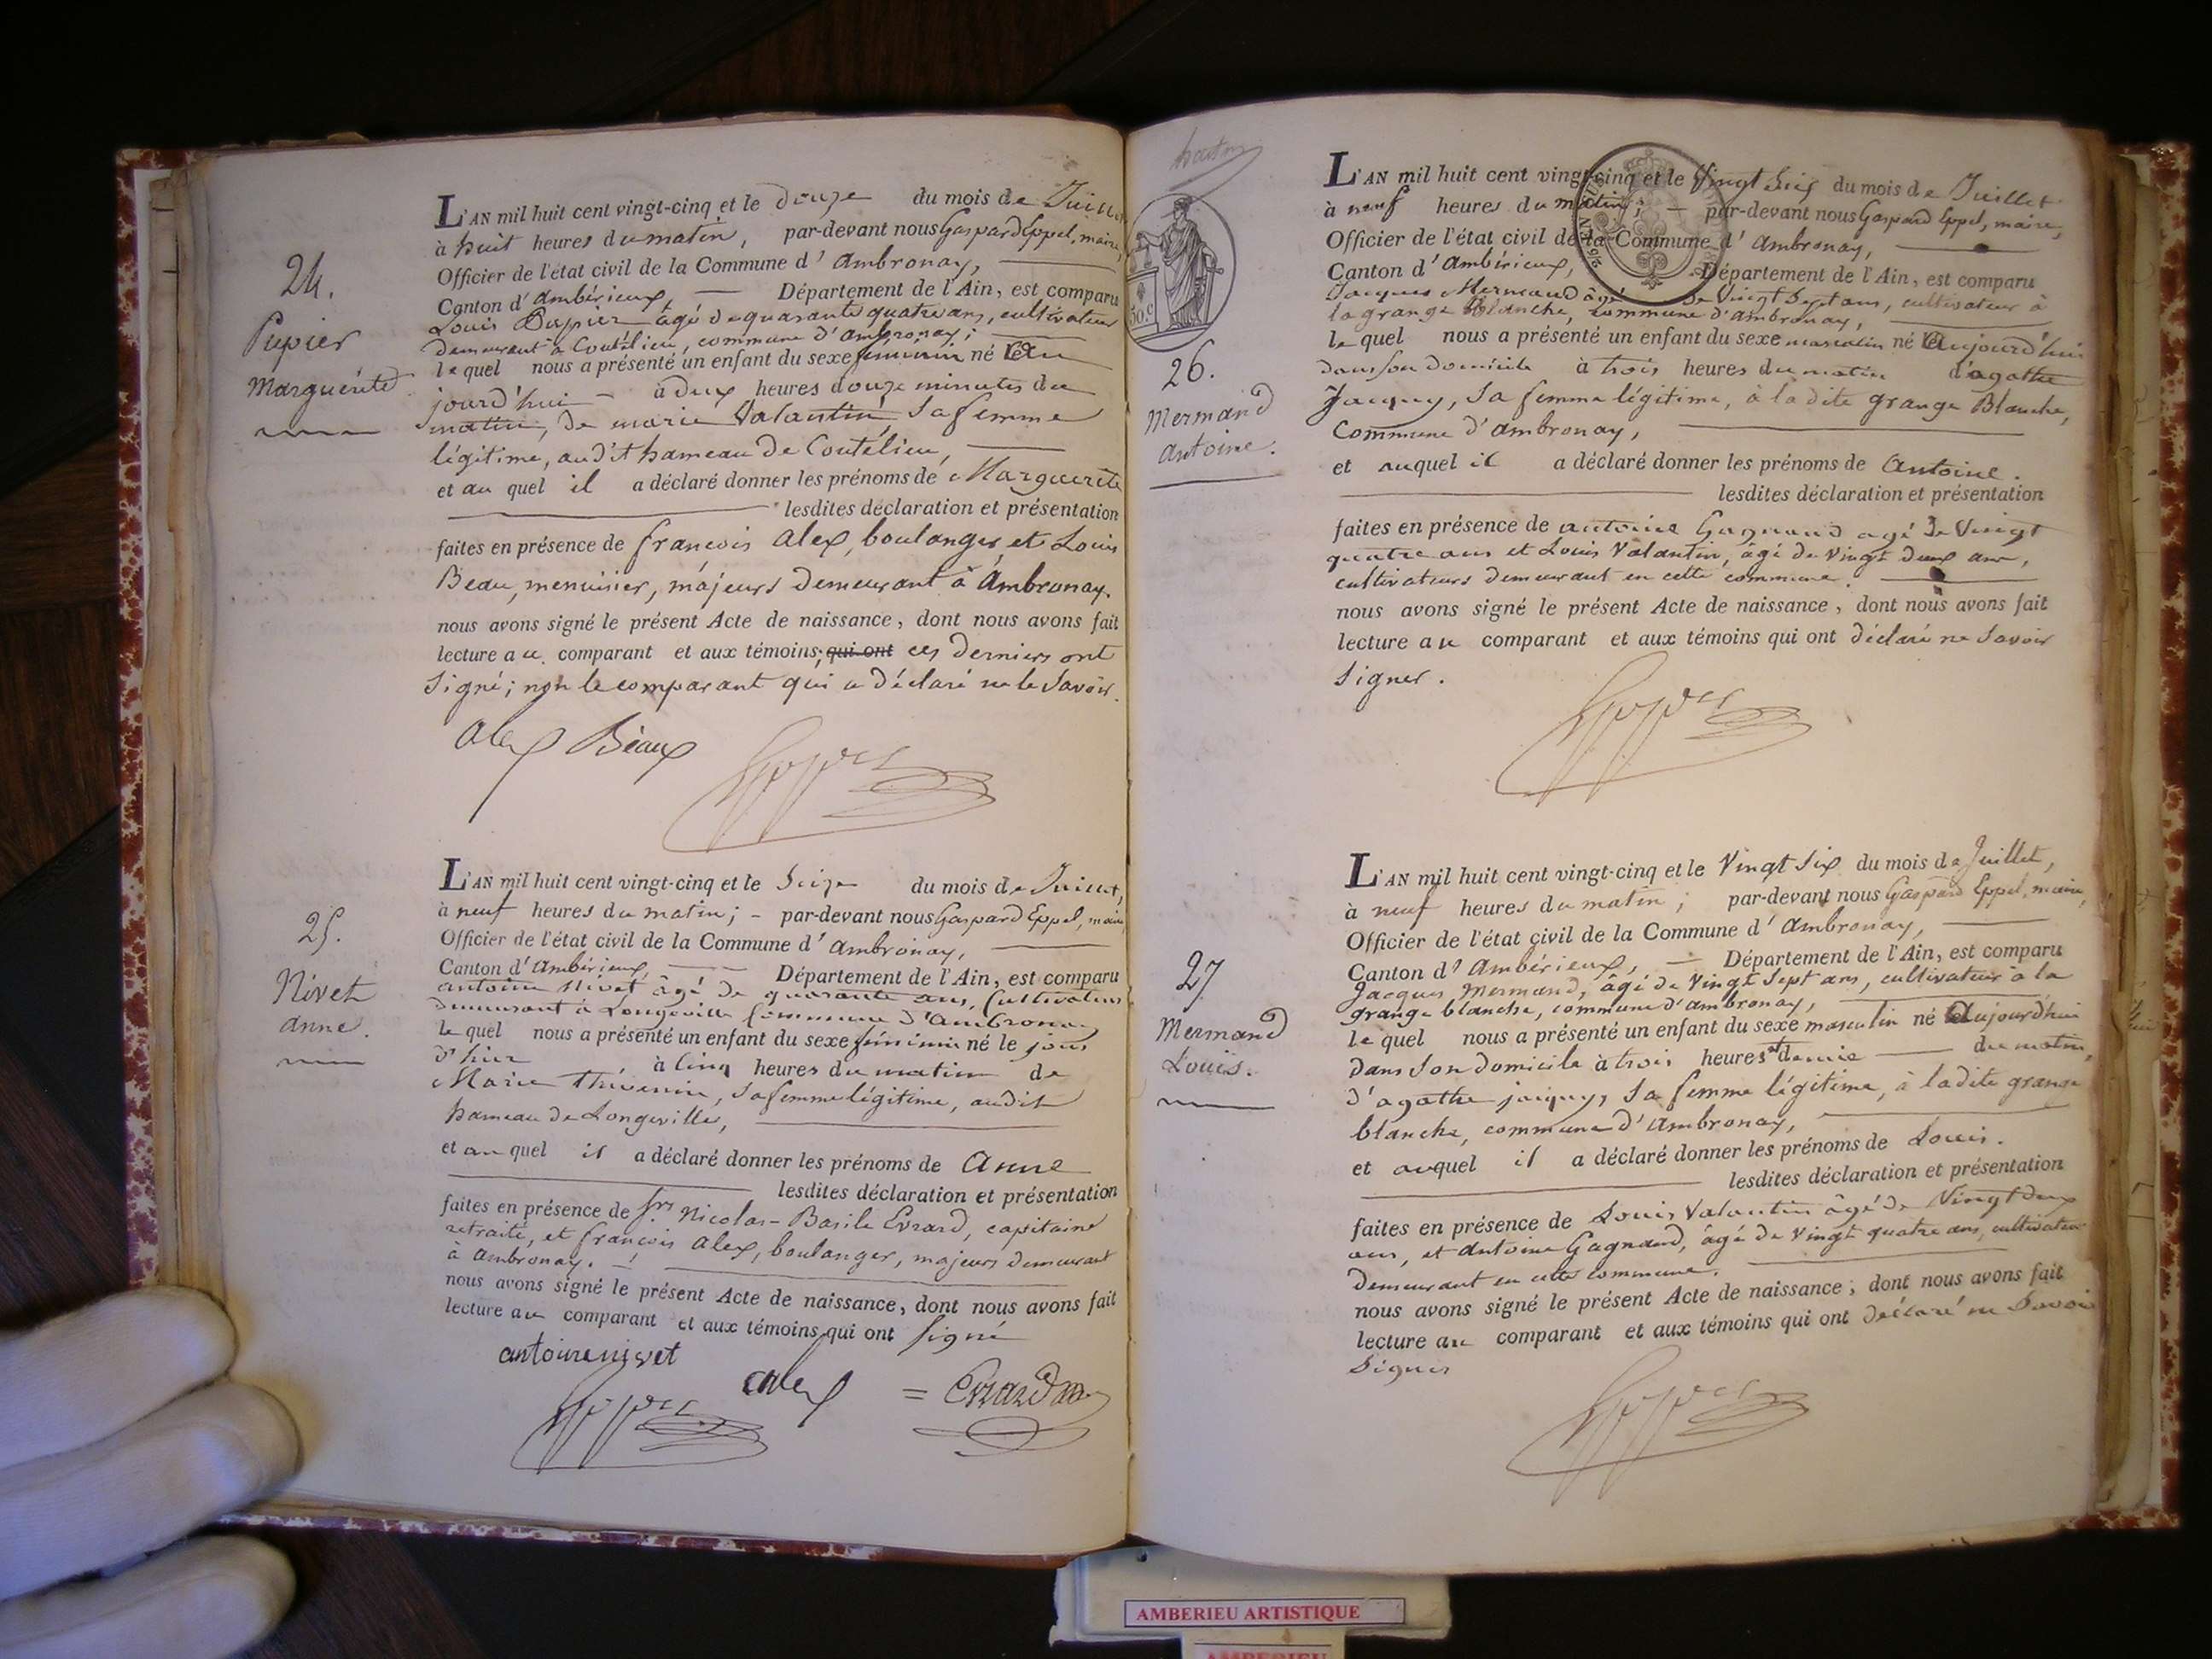 24.
Pupier
Marguerite
L'AN mil huit cent vingt-cinq et le douze du mois de Juillet
à huit heures du matin, par-devant nous Gaspard Eppel, maire,
Officier de l'état civil de la Commune d'Ambronay,
Canton d'Ambérieux, Département de l'Ain, est comparu
Louis Pupier âgé de quarante quatre ans, cultivateur
demeurant à Coutelieu, commune d'ambronay;
lequel nous a présenté un enfant du sexe féminin né Au
jourd'hui à deux heures douze minutes du
matin, de marie Valantin, sa femme
légitime, audit hameau de Coutélieu,
et au quel il a déclaré donner les prénoms de Marguerite
lesdites déclaration et présentation
faites en présence de francois alex, boulanger, et Louis
Beau, menuisier, májeurs demeurant à Ambronay.
nous avons signé le présent Acte de naissance, dont nous avons fait
lecture au comparant et aux témoins; qui ont ces derniers ont
signé; non le comparant qui a déclaré ne le savoir.
alex Béaux
25.
Nivet
anne.
L'AN mil huit cent vingt-cinq et le seize du mois de Juillet,
à neuf heures du matin; - par-devant nous Gaspard Eppel, maire
Officier de l'état civil de la Commune d'ambronay,
Canton d'Ambérieux, Département de l'Ain, est comparu
antoine Nivet âgé de quarante ans, Cultivateur
demeurant à Longeville Commune d'Ambronay
lequel nous a présenté un enfant du sexe féminin né le jour
d'hier à cinq heures du matin de
Marie Thévenin, sa femme légitime, audit
hameau de Longeville,
et au quel il a déclaré donner les prénoms de Anne
lesdites déclaration et présentation
faites en présence de Nicolas-Basile Evrard, capitaine
retraité, et françois alex, boulanger, majeurs demeurant
à ambronay.
nous avons signé le présent Acte de naissance, dont nous avons fait
lecture au comparant et aux témoins qui ont signé
antoine nivet
alex = Evrard
50.c
26.
Mermand
antoine.
L'AN mil huit cent vingt-cinq et le Vingt Six du mois de Juillet
à neuf heures du matin; - par-devant nous Gaspard Eppel, maire,
Officier de l'état civil de la Commune d'ambronay,
Canton d'ambérieux, Département de l'Ain, est comparu
Jacques Mermand âgé de Vingt Sept ans, cultivateur à
la grange Blanche, commune d'ambronay,
lequel nous a présenté un enfant du sexe masculin né Aujourd'hui
dans son domicile à trois heures du matin d'agathe
Jacquey, sa femme légitime, à la dite grange Blanche,
Commune d'ambronay,
et auquel il a déclaré donner les prénoms de Antoine.
lesdites déclaration et présentation
faites en présence de antoine Gagnand agé de Vingt
quatre ans et Louis Valantin, âgé de Vingt deux ans,
cultivateurs demeurant en cette commune.
nous avons signé le présent Acte de naissance, dont nous avons fait
lecture au comparant et aux témoins qui ont déclaré ne savoir
signer.
27
Mermand
Louis.
L'AN mil huit cent vingt-cinq et le Vingt Six du mois de Juillet,
à neuf heures du matin; par-devant nous Gaspard Eppel, maire,
Officier de l'état civil de la Commune d'Ambronay,
Canton d'Ambérieux, - Département de l'Ain, est comparu
Jacques Mermand, âgé de Vingt Sept ans, cultivateur à la
grange blanche, commune d'ambronay,
lequel nous a présenté un enfant du sexe masculin né Aujourd'hui
dans son domicile à trois heures et demie du matin,
d'agathe jacquey, sa femme légitime, à la dite grange
blanche, commune d'Ambronay,
et auquel il a déclaré donner les prénoms de Louis.
lesdites déclaration et présentation
faites en présence de Louis Valantin âgé de Vingt deux
ans, et Antoine Gagnand, âgé de Vingt quatre ans, cultivateurs
demeurant en cette commune.
nous avons signé le présent Acte de naissance, dont nous avons fait
lecture au comparant et aux témoins qui ont déclaré ne savoir
signer
AMBERIEU ARTISTIQUE
AMBERIEU